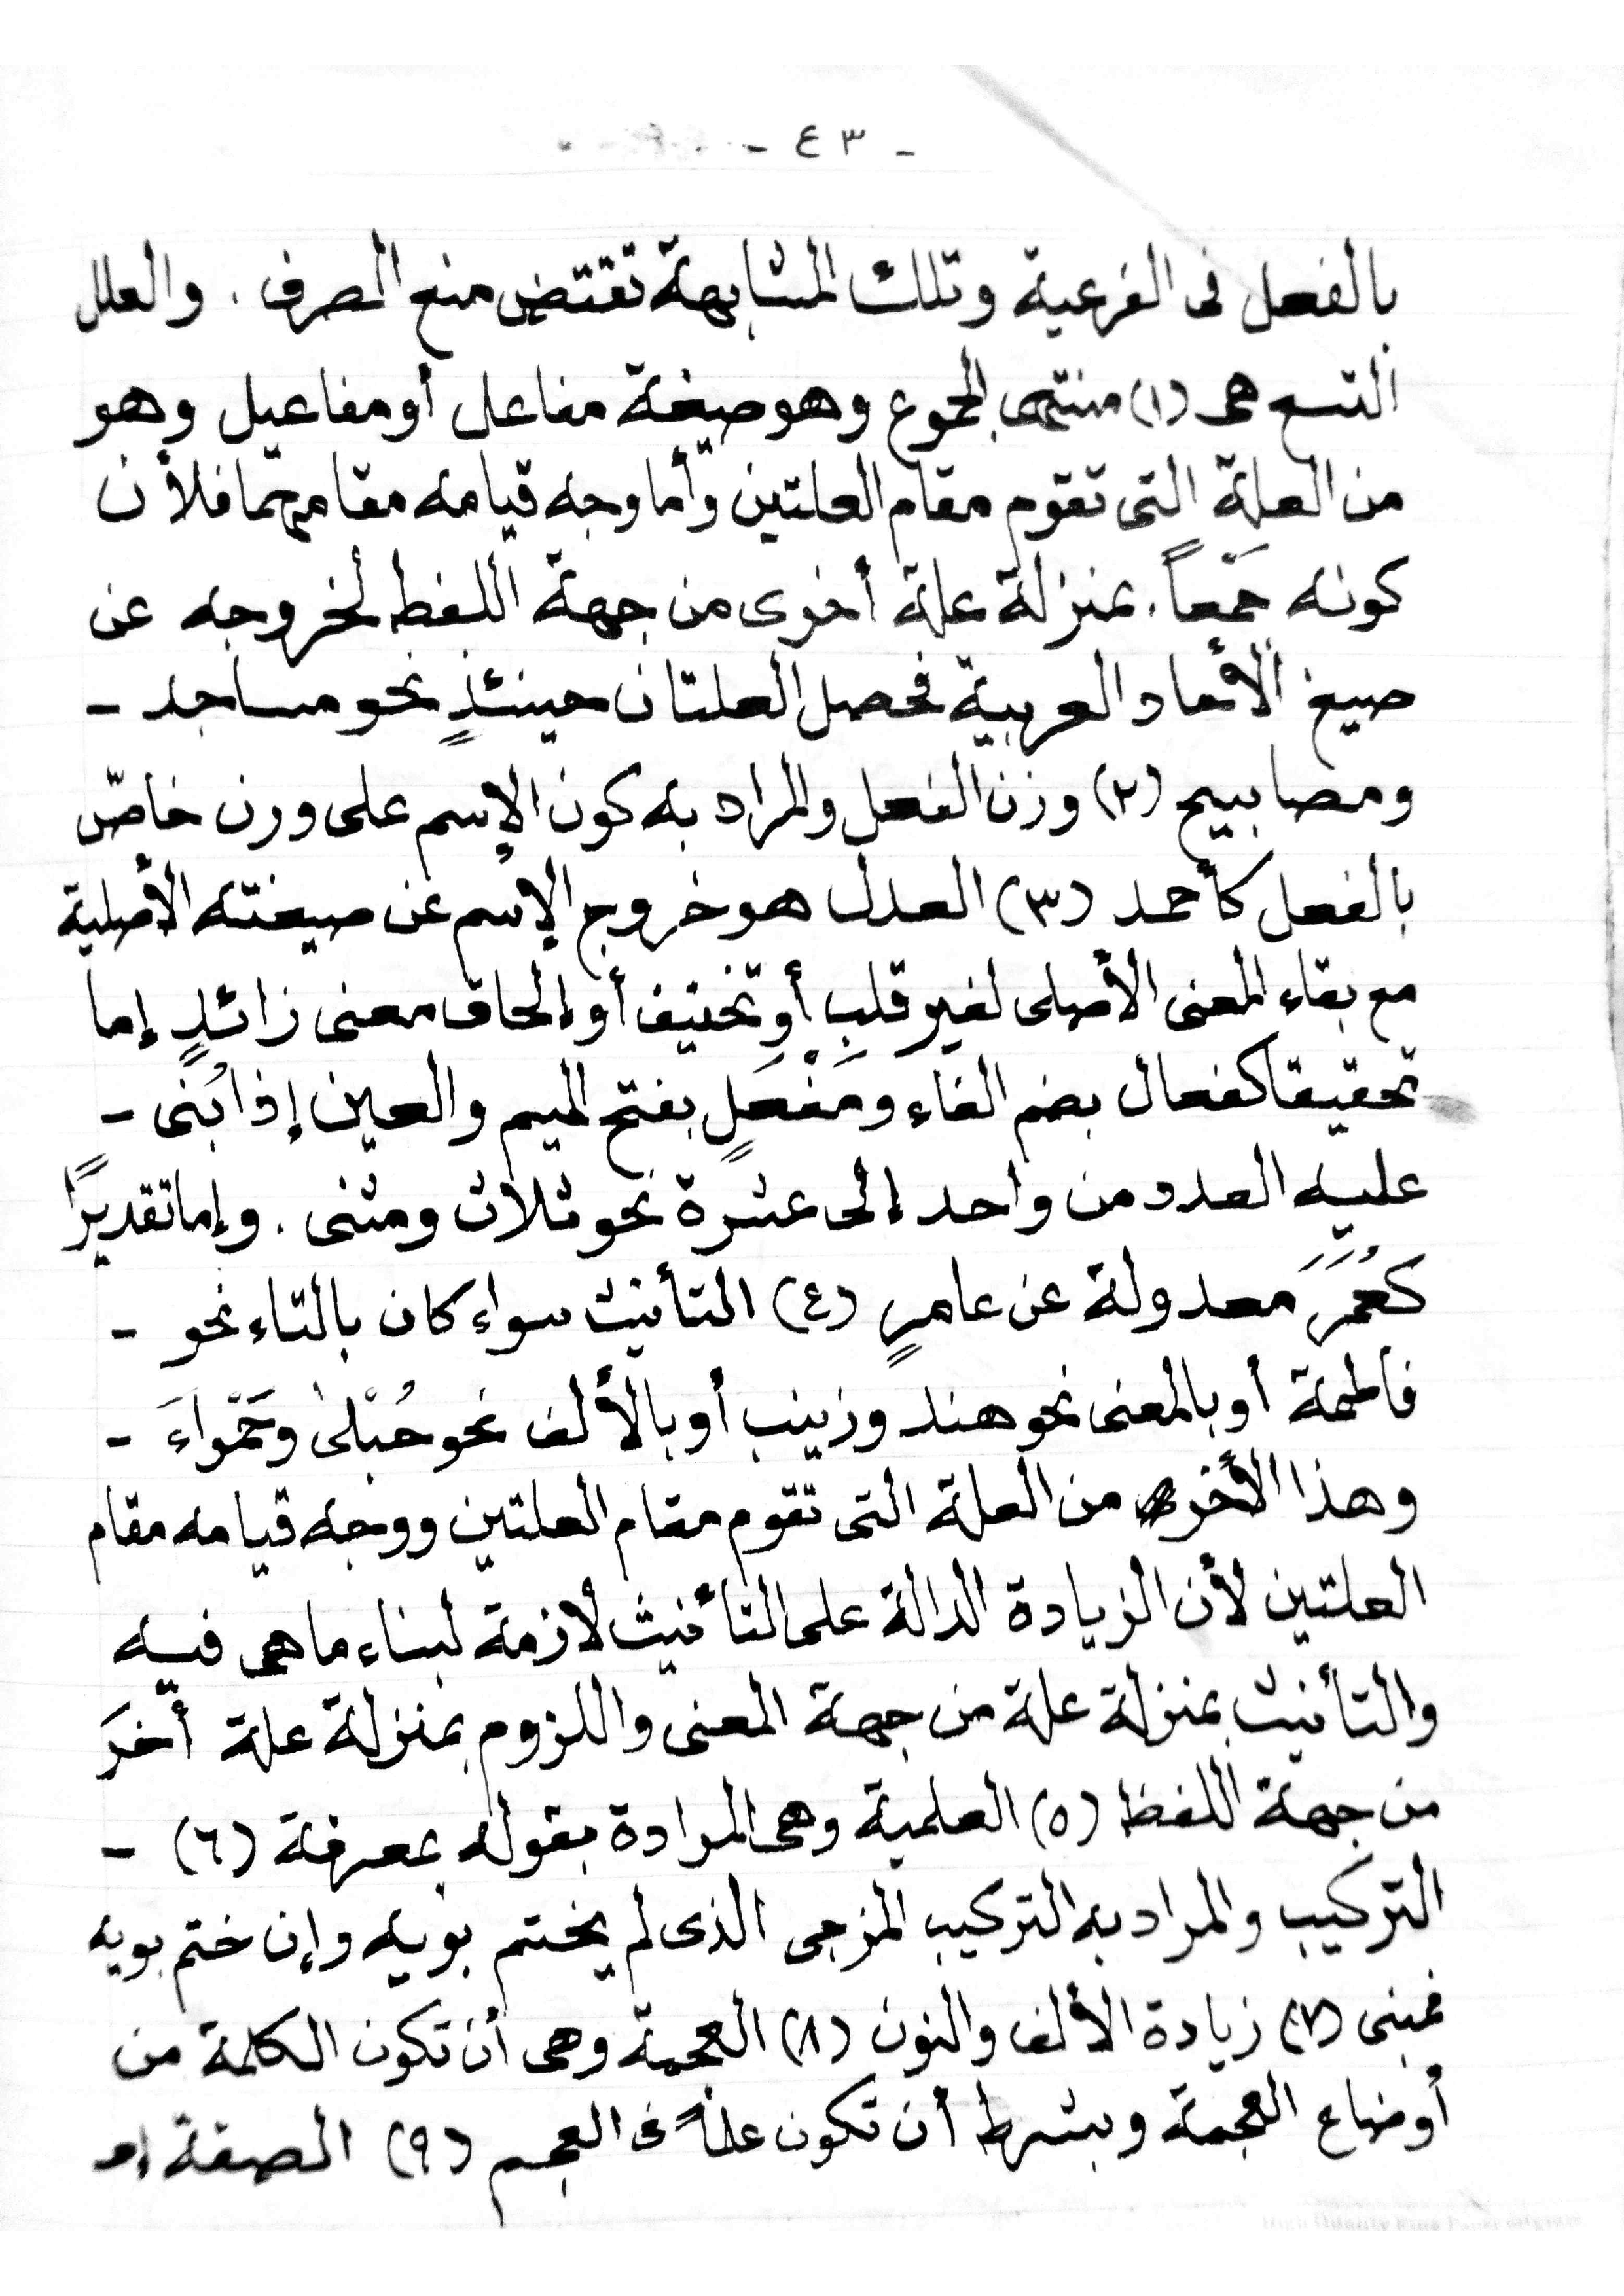 - ٤٣ -
بالفعل فى الفرعية وتلك المشابهة تقتضى منع الصرف . والعلل
التسع هى (١) منتهى الجموع وهو صيغة مفاعل أو مفاعيل وهو
من العلة التى تقوم مقام العلتين وأما وجه قيامه مقامهما فلأن
كونه جَمْعاً . بمنزلة علة أخرى من جهة اللفظ لخروجه عن
صيغ الأحاد العربية فحصل العلتان حينئذٍ نحو مساجد -
ومصابيح (٢) وزن الفعل والمراد به كون الإسم على وزن خاصّ
بالفعل كأحمد (٣) العدل هو خروج الإسم عن صيغته الأصلية
مع بقاء المعنى الأصلى لغير قلبٍ أو تخفيف أو إلحاق معنى زائدٍ إما
تحقيقا كفعال بضم الفاء ومَفْعَلٍ بفتح الميم والعين إذا بُنى -
عليه العدد من واحد إلى عشرة نحو ثلاث ومثنى . وإما تقديرًا
كعُمَرَ معدولة عن عامرٍ (٤) التأنيث سواء كان بالتاء نحو -
فاطمة أو بالمعنى نحو هند وزينب أو بالألف نحو حُبْلىٰ وحَمْراءَ -
وهذا الأخر من العلة التى تقوم مقام العلتين ووجه قيامه مقام
العلتين لأن الزيادة الدالة على التأنيث لازمة لبناء ما هى فيه
والتأنيث بمنزلة علة من جهة المعنى واللزوم بمنزلة علة أخرَ
من جهة اللفظ (٥) العلمية وهى المرادة بقوله بمعرفة (٦) -
التركيب والمراد به التركيب المزجى الذى لم يختم بويه وإن ختم بويه
فمبنى (٧) زيادة الألف والنون (٨) العجمة وهى أن تكون الكلمة من
أوضاع العجمة وبشرط أن تكون علماً فى العجم (٩) الصفة